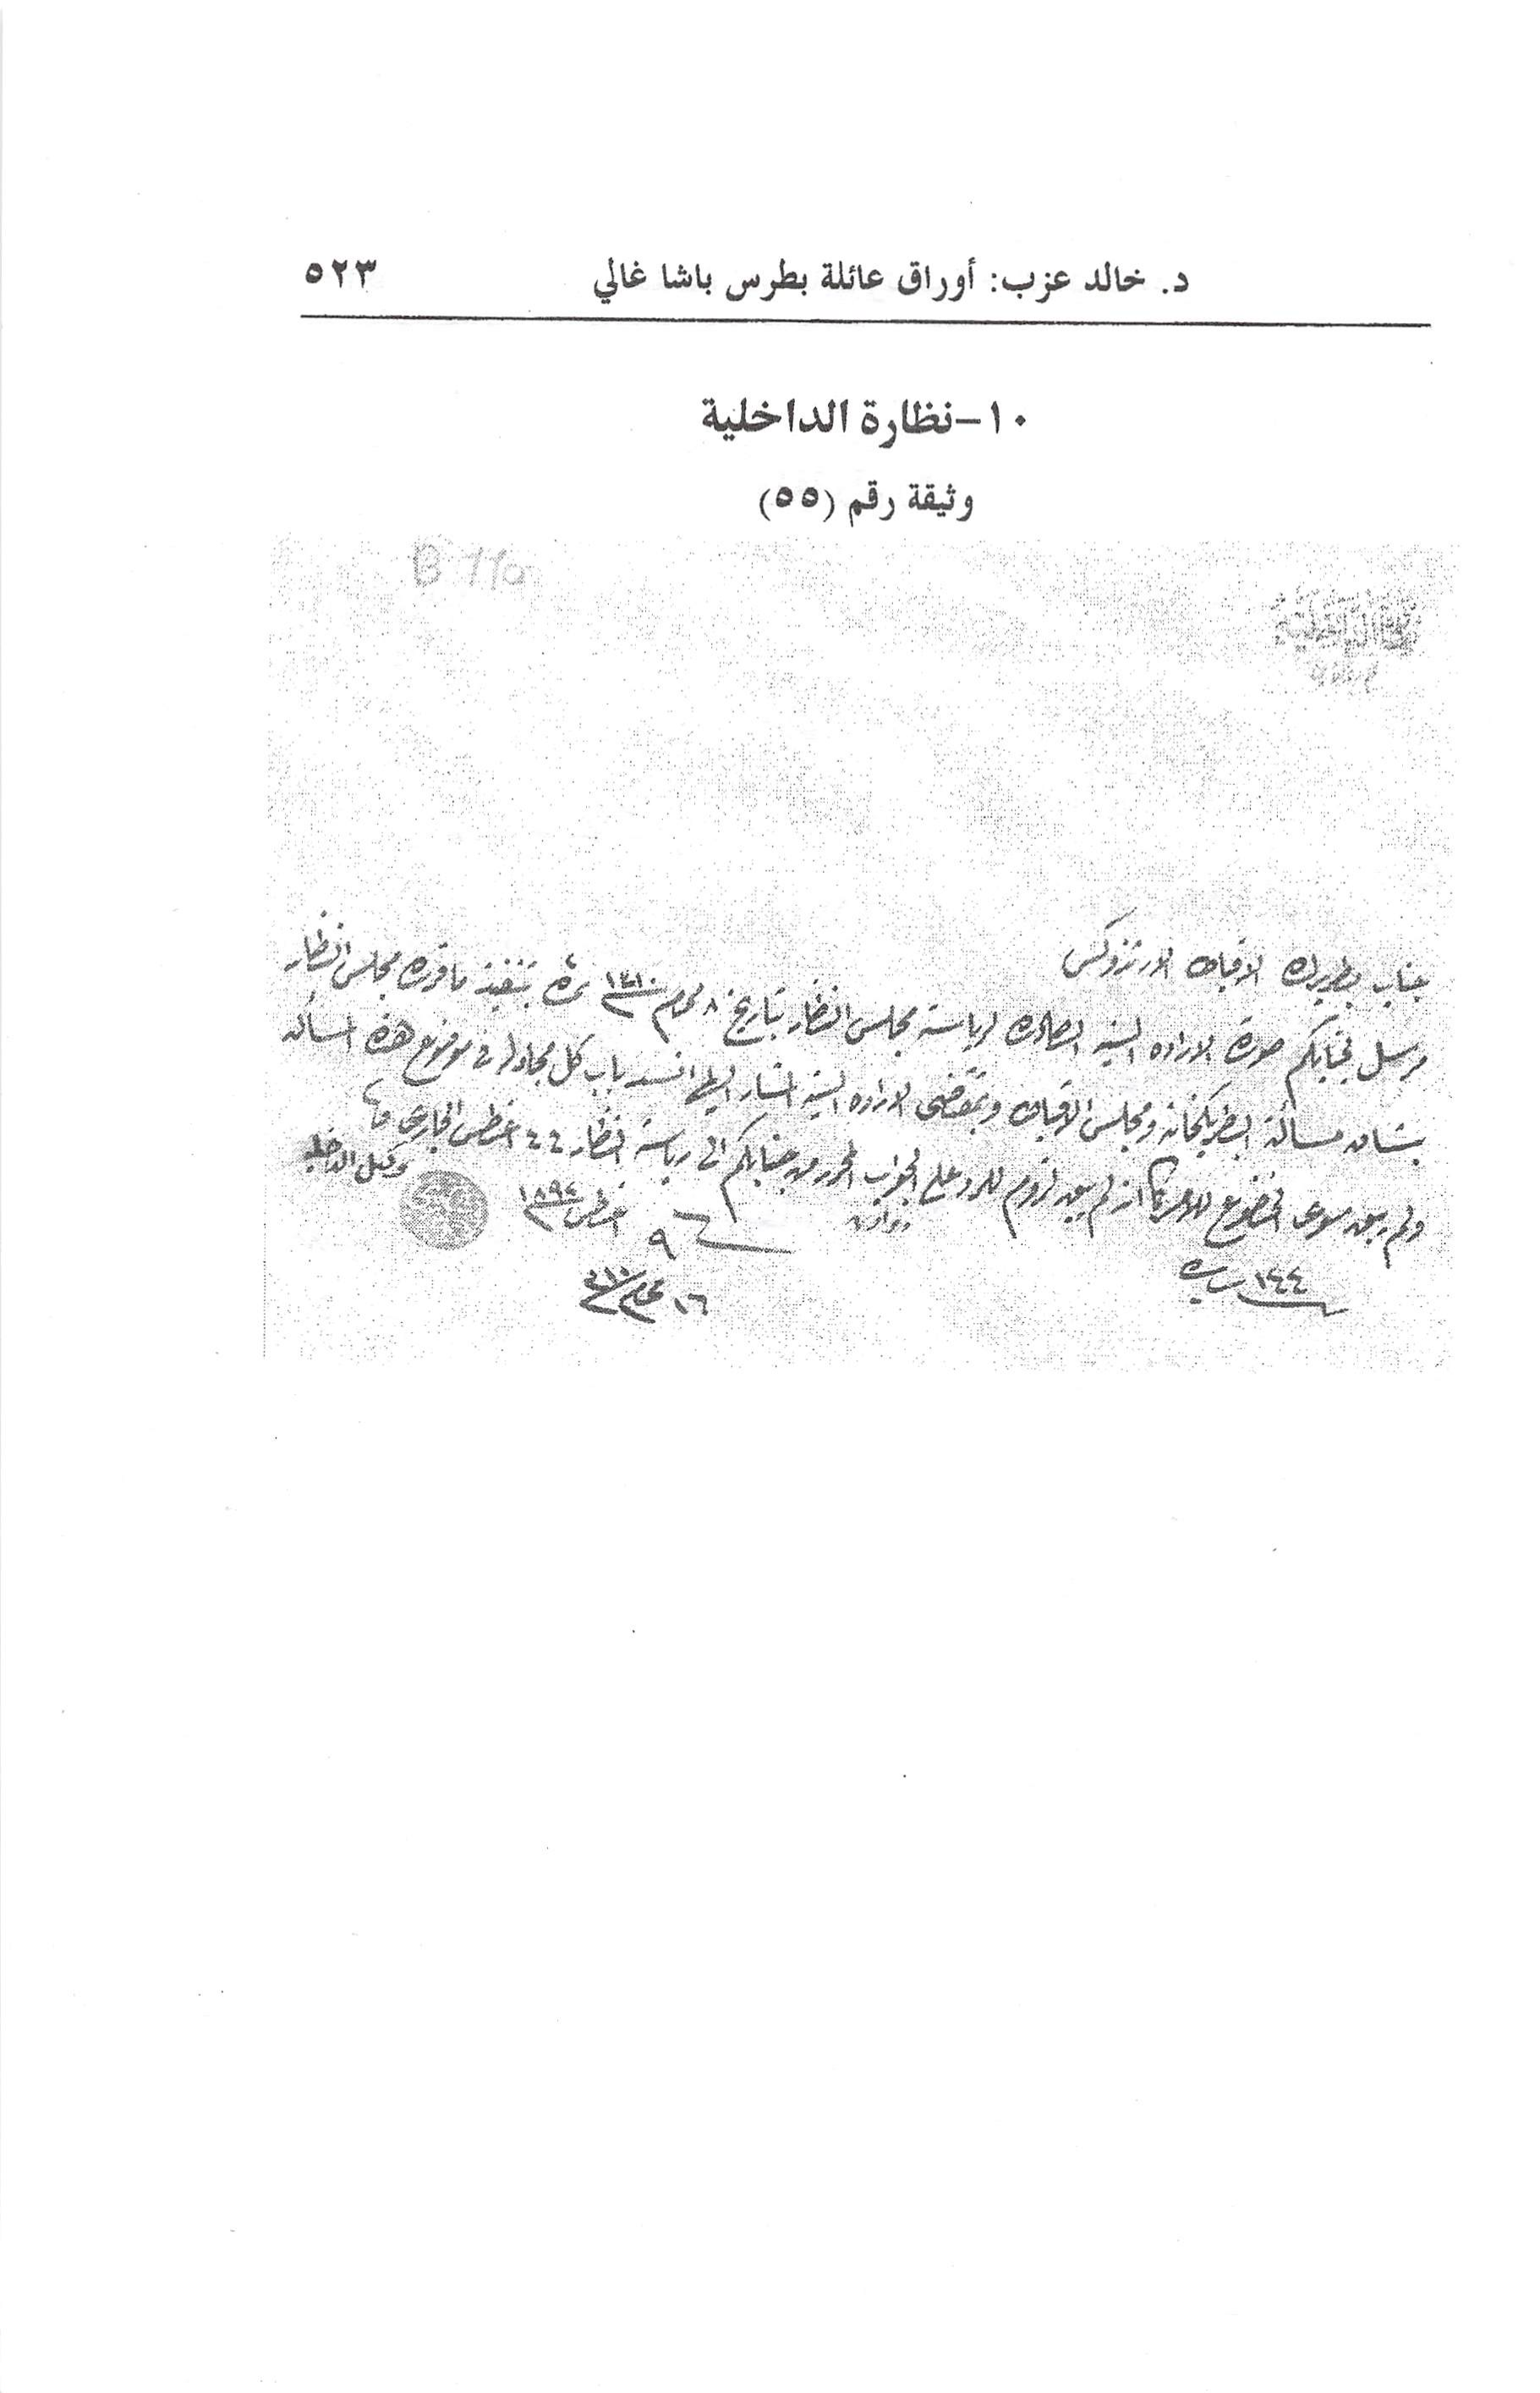 د. خالد عزب: أوراق عائلة بطرس باشا غالي ٥٢٣
١٠-نظارة الداخلية
وثيقة رقم (٥٥)
B 11a
نظارة الداخلية
جناب بطريرك الاقباط الارتزوكس
مرسل لجنابكم صورة الاراده السنيه الصادره لرياسة مجلس النظار بتاريخ ٨ محرم ١٣١٠ نمرة بتنفيذ ما قرره مجلس النظار
بشان مسألة البطريكخانه ومجلس الاقباط وبمقتضى الاراده السنيه المشار اليها انسد باب كل مجادله في موضوع هذه المسأله
ولم يعد سوى الخضوع للاوامر كما انه لم يعد لزوم للرد على الجواب المحرر من جنابكم الى رياسة النظار ٤٤ اغسطس الجاري
وكيل الداخليه
٩ اغسطس ١٨٩٢
١٦ محرم ٣١٠
١٤٤